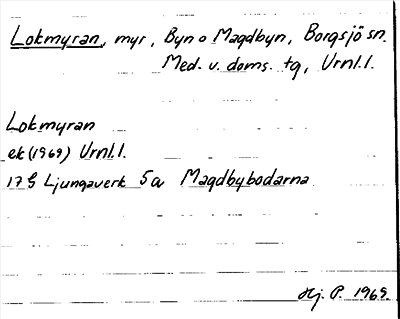 Lokmyran, myr, Byn o Magdbyn, Borgsjö sn.
Med. v. doms. tg, Urnl.l.
Lokmyran
ek (1969) Urnl.l.
17 G Ljungaverk 5a Magdbybodarna
Hj. P. 1969.